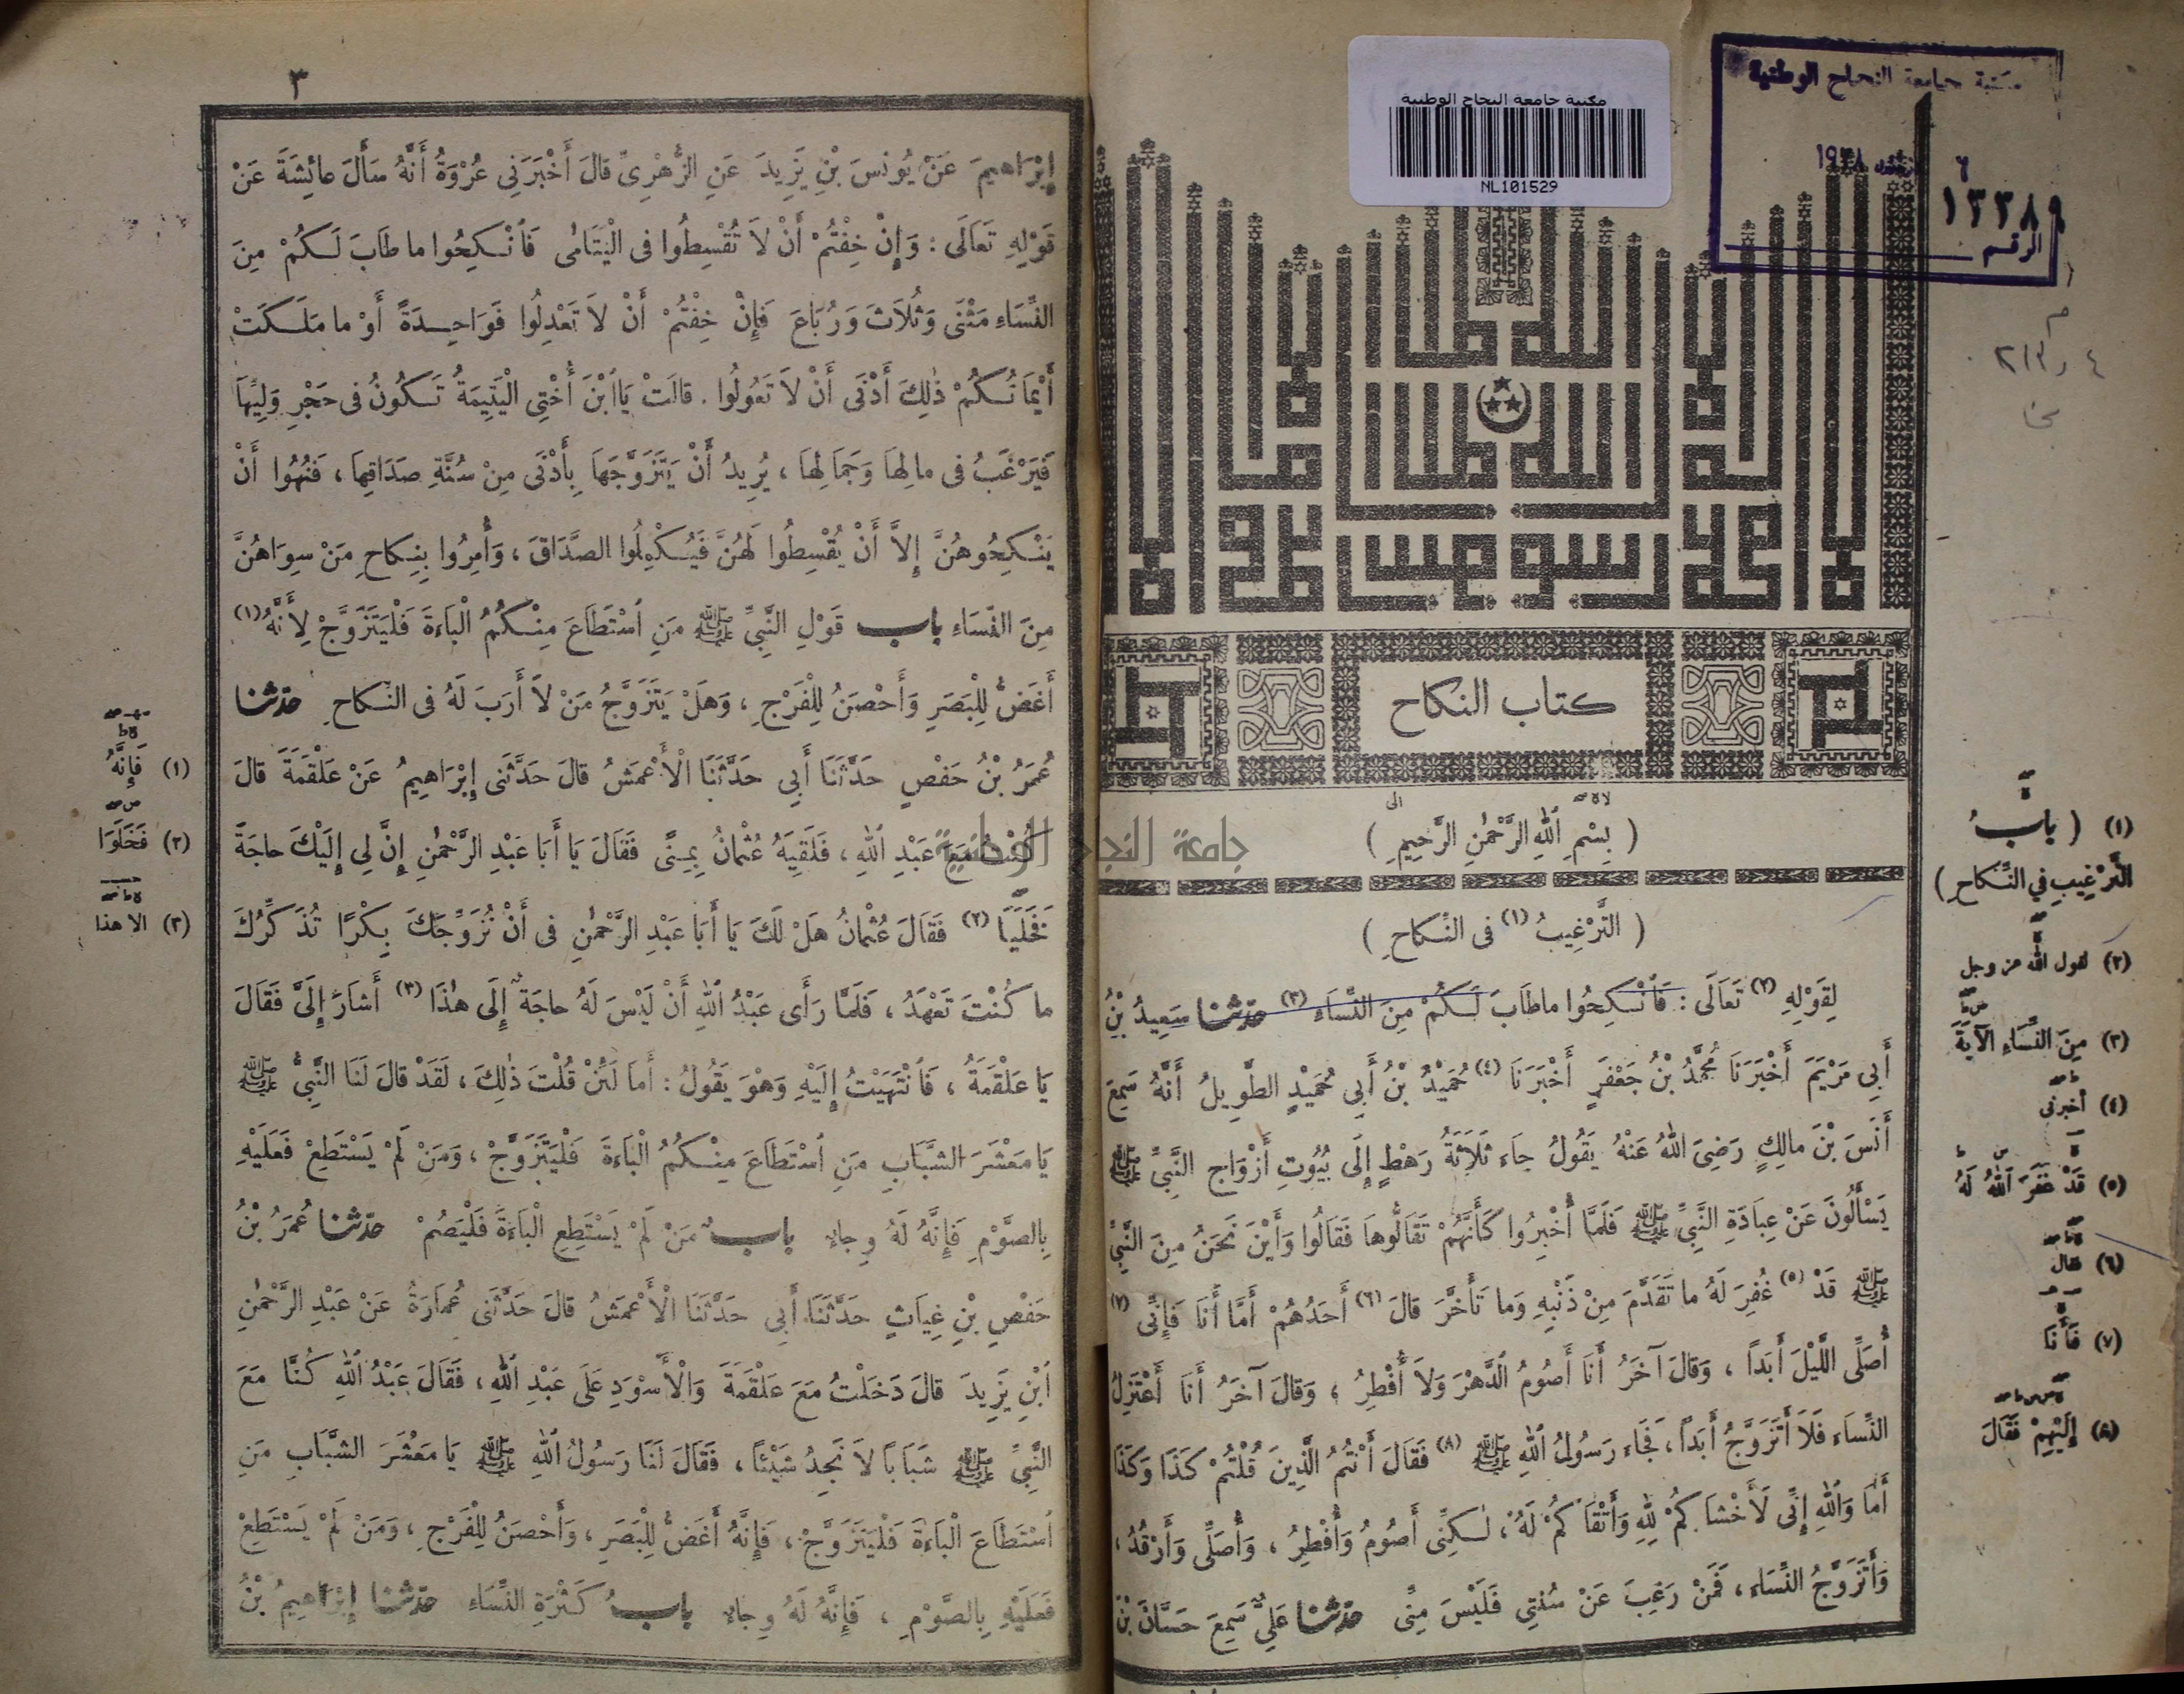 مكتبة جامعة النجاح الوطنية
NL101529
مكتبة جامعة النجاح الوطنية
١٣٣٨٩
الرقم
لا إله إلا الله
محمد رسول الله
كتاب النكاح
( بِسْمِ اللهِ الرَّحْمٰنِ الرَّحِيمِ )
جامعة النجاح الوطنية
( التَّرْغِيبُ (١) فى النِّكاحِ )
لِقَوْلِهِ (٢) تَعَالَى : فَانْكِحُوا ما طَابَ لَكُمْ مِنَ النِّسَاءِ (٣) حدّثنا سَعِيدُ بْنُ
أَبِي مَرْيَمَ أَخْبَرَنَا مُحَمَّدُ بْنُ جَعْفَرٍ أَخْبَرَنَا (٤) حُمَيْدُ بْنُ أَبِي حُمَيْدٍ الطَّوِيلُ أَنَّهُ سَمِعَ
أَنَسَ بْنَ مالِكٍ رَضِيَ اللهُ عَنْهُ يَقُولُ جَاءَ ثَلَاثَةُ رَهْطٍ إِلَى بُيُوتِ أَزْوَاجِ النَّبِيِّ ﷺ
يَسْأَلُونَ عَنْ عِبَادَةِ النَّبِيِّ ﷺ فَلَمَّا أُخْبِرُوا كَأَنَّهُمْ تَقَالُّوهَا فَقَالُوا وَأَيْنَ نَحْنُ مِنَ النَّبِيِّ
ﷺ قَدْ (٥) غُفِرَ لَهُ ما تَقَدَّمَ مِنْ ذَنْبِهِ وَما تَأَخَّرَ قالَ (٦) أَحَدُهُمْ أَمَّا أَنَا فَإِنِّى (٧)
أُصَلِّى اللَّيْلَ أَبَداً ، وَقالَ آخَرُ أَنَا أَصُومُ الدَّهْرَ وَلاَ أُفْطِرُ ، وَقالَ آخَرُ أَنَا أَعْتَزِلُ
النِّسَاءَ فَلاَ أَتَزَوَّجُ أَبَداً ، فَجَاءَ رَسُولُ اللهِ ﷺ (٨) فَقَالَ أَنْتُمُ الَّذِينَ قُلْتُمْ كَذَا وَكَذَا
أَمَا وَاللهِ إِنِّى لَأَخْشَاكُمْ لِلهِ وَأَتْقَاكُمْ لَهُ ، لٰكِنِّى أَصُومُ وَأُفْطِرُ ، وَأُصَلِّى وَأَرْقُدُ ،
وَأَتَزَوَّجُ النِّسَاءَ ، فَمَنْ رَغِبَ عَنْ سُنَّتِي فَلَيْسَ مِنِّى حدّثنا عَلِيٌّ سَمِعَ حَسَّانَ بْنَ
(١) ( بابُ
التَّرْغِيبِ فِي النِّكاحِ )
(٢) لقول الله عز وجل
(٣) مِنَ النِّسَاءِ الآيَةَ
(٤) أخبرنى
(٥) قَدْ غَفَرَ اللهُ لَهُ
(٦) فقال
(٧) فَأَنَا
(٨) إِلَيْهِمْ فَقَالَ
٣
إِبْرَاهِيمَ عَنْ يُونُسَ بْنِ يَزِيدَ عَنِ الزُّهْرِىِّ قالَ أَخْبَرَنِى عُرْوَةُ أَنَّهُ سَأَلَ عائِشَةَ عَنْ
قَوْلِهِ تَعَالَى : وَإِنْ خِفْتُمْ أَنْ لاَ تُقْسِطُوا فى الْيَتَامٰى فَانْكِحُوا ما طَابَ لَكُمْ مِنَ
النِّسَاءِ مَثْنَى وَثُلاَثَ وَرُبَاعَ فَإِنْ خِفْتُمْ أَنْ لاَ تَعْدِلُوا فَوَاحِدَةً أَوْ ما مَلَكَتْ
أَيْمَانُكُمْ ذٰلِكَ أَدْنَى أَنْ لاَ تَعُولُوا . قالَتْ يَا ابْنَ أُخْتِى الْيَتِيمَةُ تَكُونُ فى حَجْرِ وَلِيِّهَا
فَيَرْغَبُ فى مالِهَا وَجَمَالِهَا ، يُرِيدُ أَنْ يَتَزَوَّجَهَا بِأَدْنَى مِنْ سُنَّةِ صَدَاقِهَا ، فَنُهُوا أَنْ
يَنْكِحُوهُنَّ إِلاَّ أَنْ يُقْسِطُوا لَهُنَّ فَيُكْمِلُوا الصَّدَاقَ ، وَأُمِرُوا بِنِكاحِ مَنْ سِوَاهُنَّ
مِنَ النِّسَاءِ باب قَوْلِ النَّبِيِّ ﷺ مَنِ اسْتَطَاعَ مِنْكُمُ الْبَاءَةَ فَلْيَتَزَوَّجْ لِأَنَّهُ (١)
أَغَضُّ لِلْبَصَرِ وَأَحْصَنُ لِلْفَرْجِ ، وَهَلْ يَتَزَوَّجُ مَنْ لاَ أَرَبَ لَهُ فى النِّكاحِ حدّثنا
عُمَرُ بْنُ حَفْصٍ حَدَّثَنَا أَبِي حَدَّثَنَا الْأَعْمَشُ قالَ حَدَّثَنِى إِبْرَاهِيمُ عَنْ عَلْقَمَةَ قالَ
كُنْتُ مَعَ عَبْدِ اللهِ ، فَلَقِيَهُ عُثْمانُ بِمِنًى فَقَالَ يَا أَبَا عَبْدِ الرَّحْمٰنِ إِنَّ لِى إِلَيْكَ حاجَةً
فَخَلَيَا (٢) فَقَالَ عُثْمانُ هَلْ لَكَ يَا أَبَا عَبْدِ الرَّحْمٰنِ فى أَنْ نُزَوِّجَكَ بِكْرًا تُذَكِّرُكَ
ما كُنْتَ تَعْهَدُ ، فَلَمَّا رَأَى عَبْدُ اللهِ أَنْ لَيْسَ لَهُ حاجَةٌ إِلَى هٰذَا (٣) أَشَارَ إِلَىَّ فَقَالَ
يَا عَلْقَمَةُ ، فَانْتَهَيْتُ إِلَيْهِ وَهْوَ يَقُولُ : أَمَا لَئِنْ قُلْتَ ذٰلِكَ ، لَقَدْ قالَ لَنَا النَّبِيُّ ﷺ
يَا مَعْشَرَ الشَّبَابِ مَنِ اسْتَطَاعَ مِنْكُمُ الْبَاءَةَ فَلْيَتَزَوَّجْ ، وَمَنْ لَمْ يَسْتَطِعْ فَعَلَيْهِ
بِالصَّوْمِ فَإِنَّهُ لَهُ وِجاءٌ بابُ مَنْ لَمْ يَسْتَطِعِ الْبَاءَةَ فَلْيَصُمْ حدّثنا عُمَرُ بْنُ
حَفْصِ بْنِ غِيَاثٍ حَدَّثَنَا أَبِي حَدَّثَنَا الْأَعْمَشُ قالَ حَدَّثَنِى عُمَارَةُ عَنْ عَبْدِ الرَّحْمٰنِ
ابْنِ يَزِيدَ قالَ دَخَلْتُ مَعَ عَلْقَمَةَ وَالْأَسْوَدِ عَلَى عَبْدِ اللهِ ، فَقَالَ عَبْدُ اللهِ كُنَّا مَعَ
النَّبِيِّ ﷺ شَبَابًا لاَ نَجِدُ شَيْئًا ، فَقَالَ لَنَا رَسُولُ اللهِ ﷺ يَا مَعْشَرَ الشَّبَابِ مَنِ
اسْتَطَاعَ الْبَاءَةَ فَلْيَتَزَوَّجْ ، فَإِنَّهُ أَغَضُّ لِلْبَصَرِ ، وَأَحْصَنُ لِلْفَرْجِ ، وَمَنْ لَمْ يَسْتَطِعْ
فَعَلَيْهِ بِالصَّوْمِ ، فَإِنَّهُ لَهُ وِجاءٌ بابُ كَثْرَةِ النِّسَاءِ حدّثنا إِبْرَاهِيمُ بْنُ
(١) فَإِنَّهُ
(٢) فَخَلَوَا
(٣) الا هذا